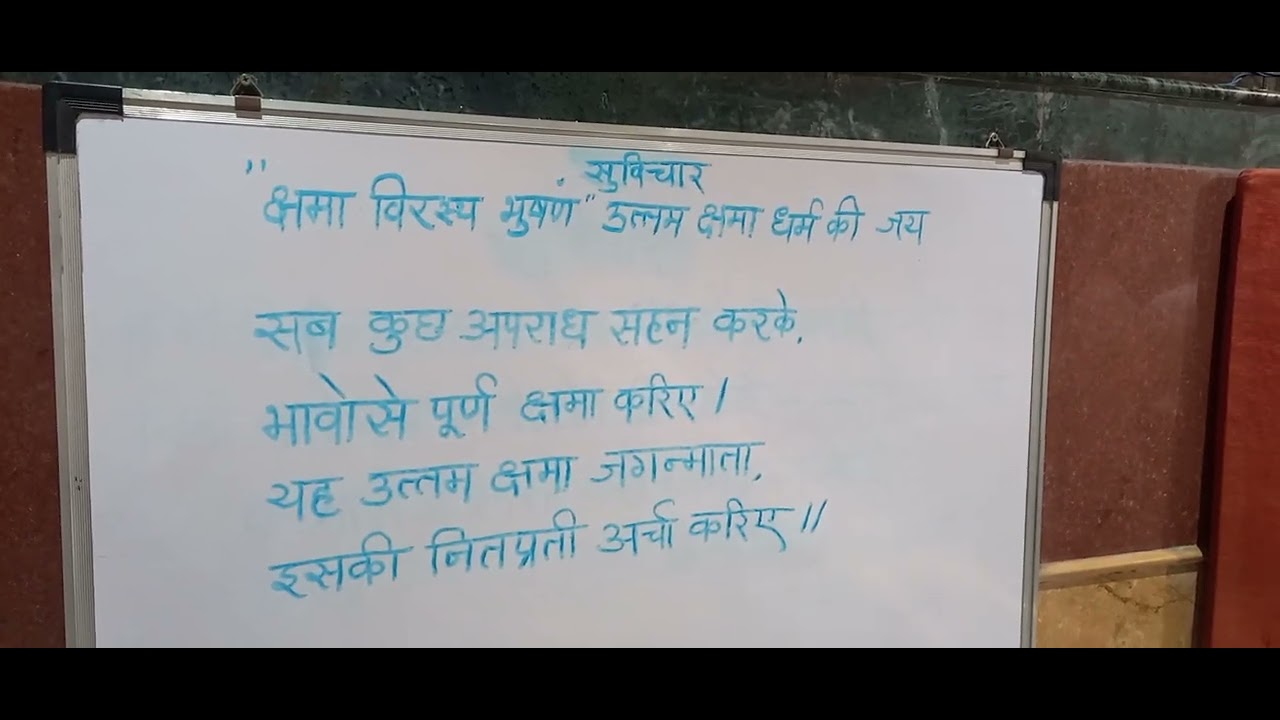 सुविचार
"क्षमा विरस्य भुषणं" उत्तम क्षमा धर्म की जय
सब कुछ अपराध सहन करके,
भावोसे पूर्ण क्षमा करिए।
यह उत्तम क्षमा जगन्माता,
इसकी नितप्रती अर्चा करिए॥